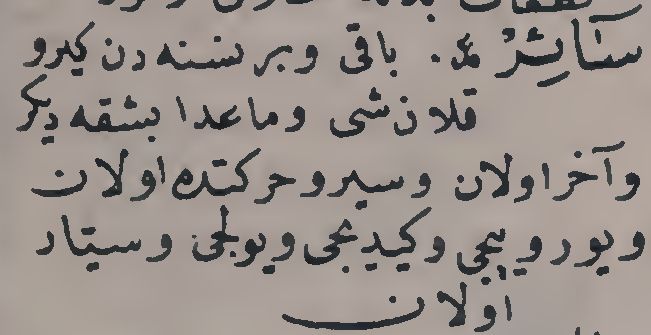 سَائِرْ عر. باقی وبر نسنه‌دن کیرو
قلان شی وماعدا بشقه دیکر
وآخر اولان وسیر وحرکتده اولان
ویوروییجی وکیدیجی ویولجی وسیّار
اولان